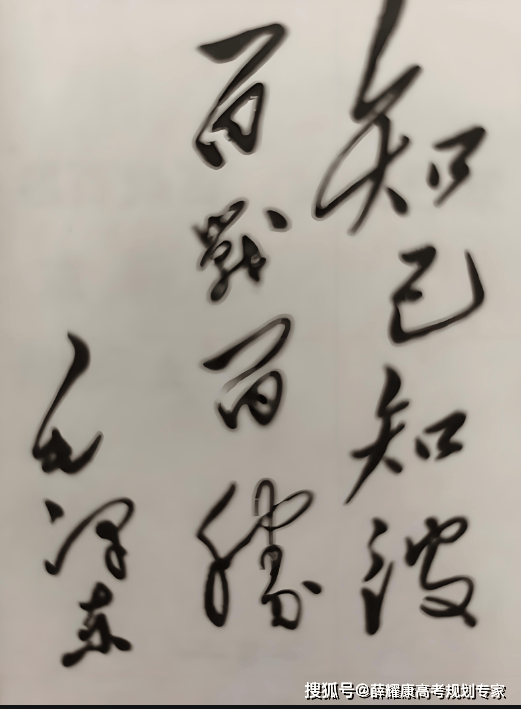 知己知彼
百戰百勝
毛泽东
搜狐号@薛耀康高考规划专家